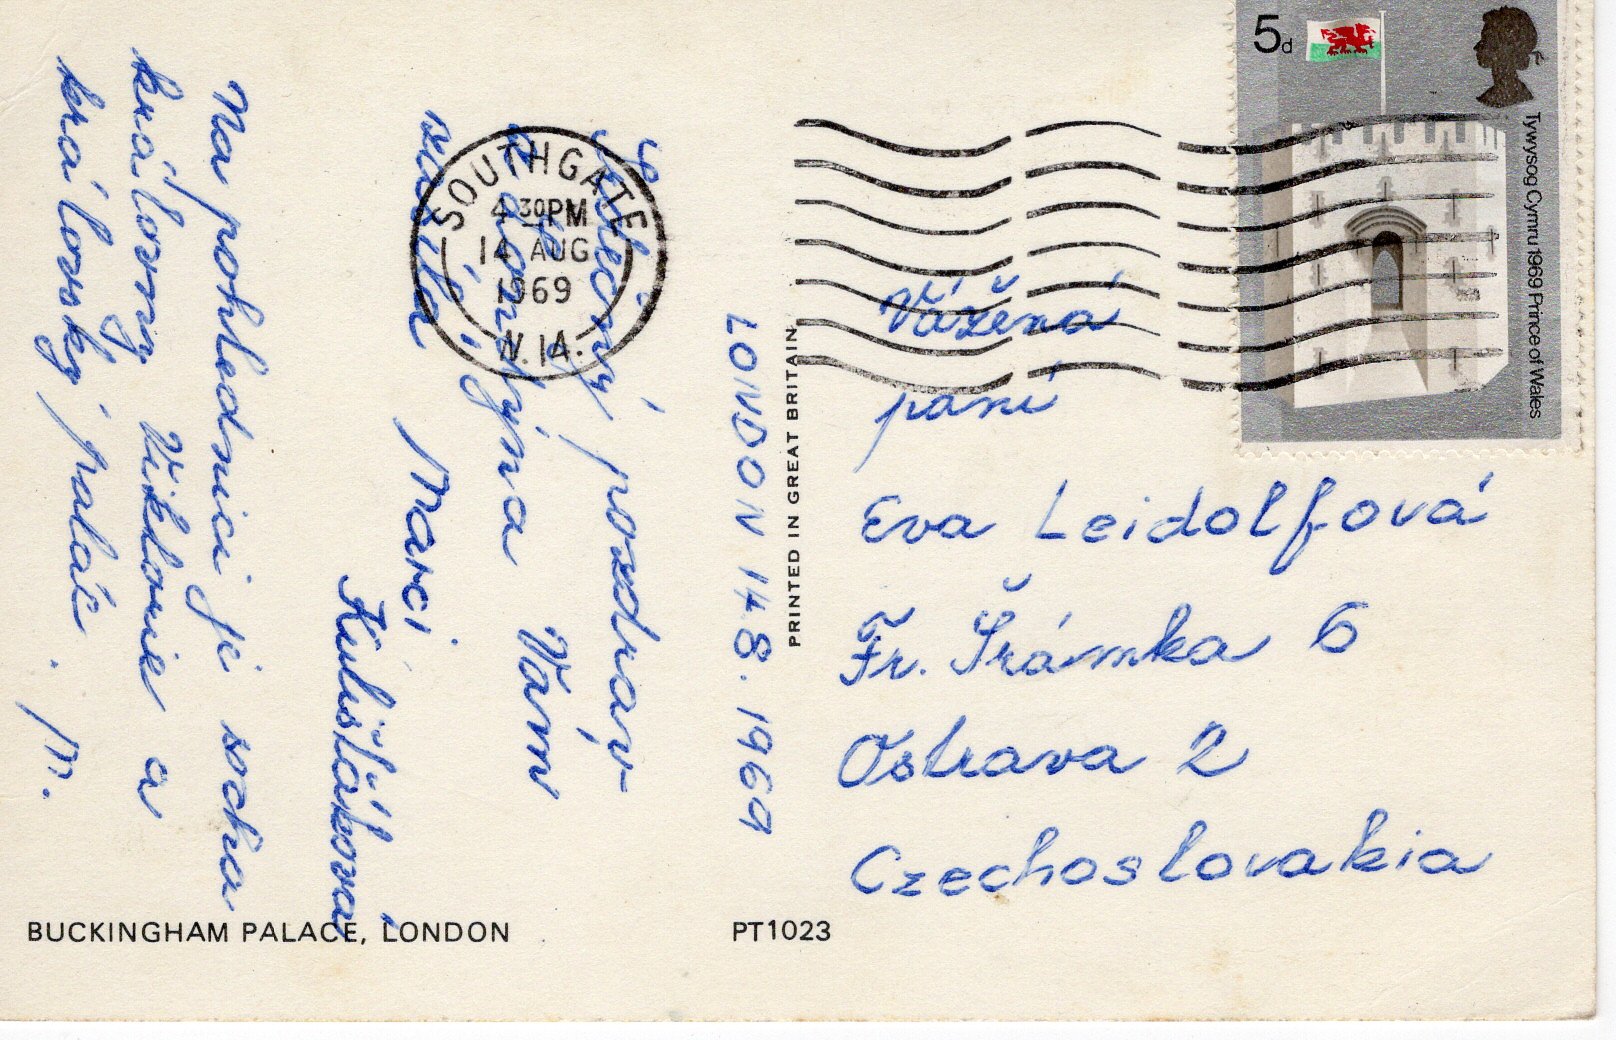 LONDON 14 8. 1969
Srdečný pozdrav
z Londýna Vám
zasílá Marci
Na pohlednici je socha
královny Viktorie a
královský palác.
M.
BUCKINGHAM PALACE, LONDON
PT1023
PRINTED IN GREAT BRITAIN
SOUTHGATE
4 30PM
14 AUG
1969
N.14.
5d
Tywysog Cymru 1969 Prince of Wales
Vážená
paní
Eva Leidolfová
Fr. Šrámka 6
Ostrava 2
Czechoslovakia